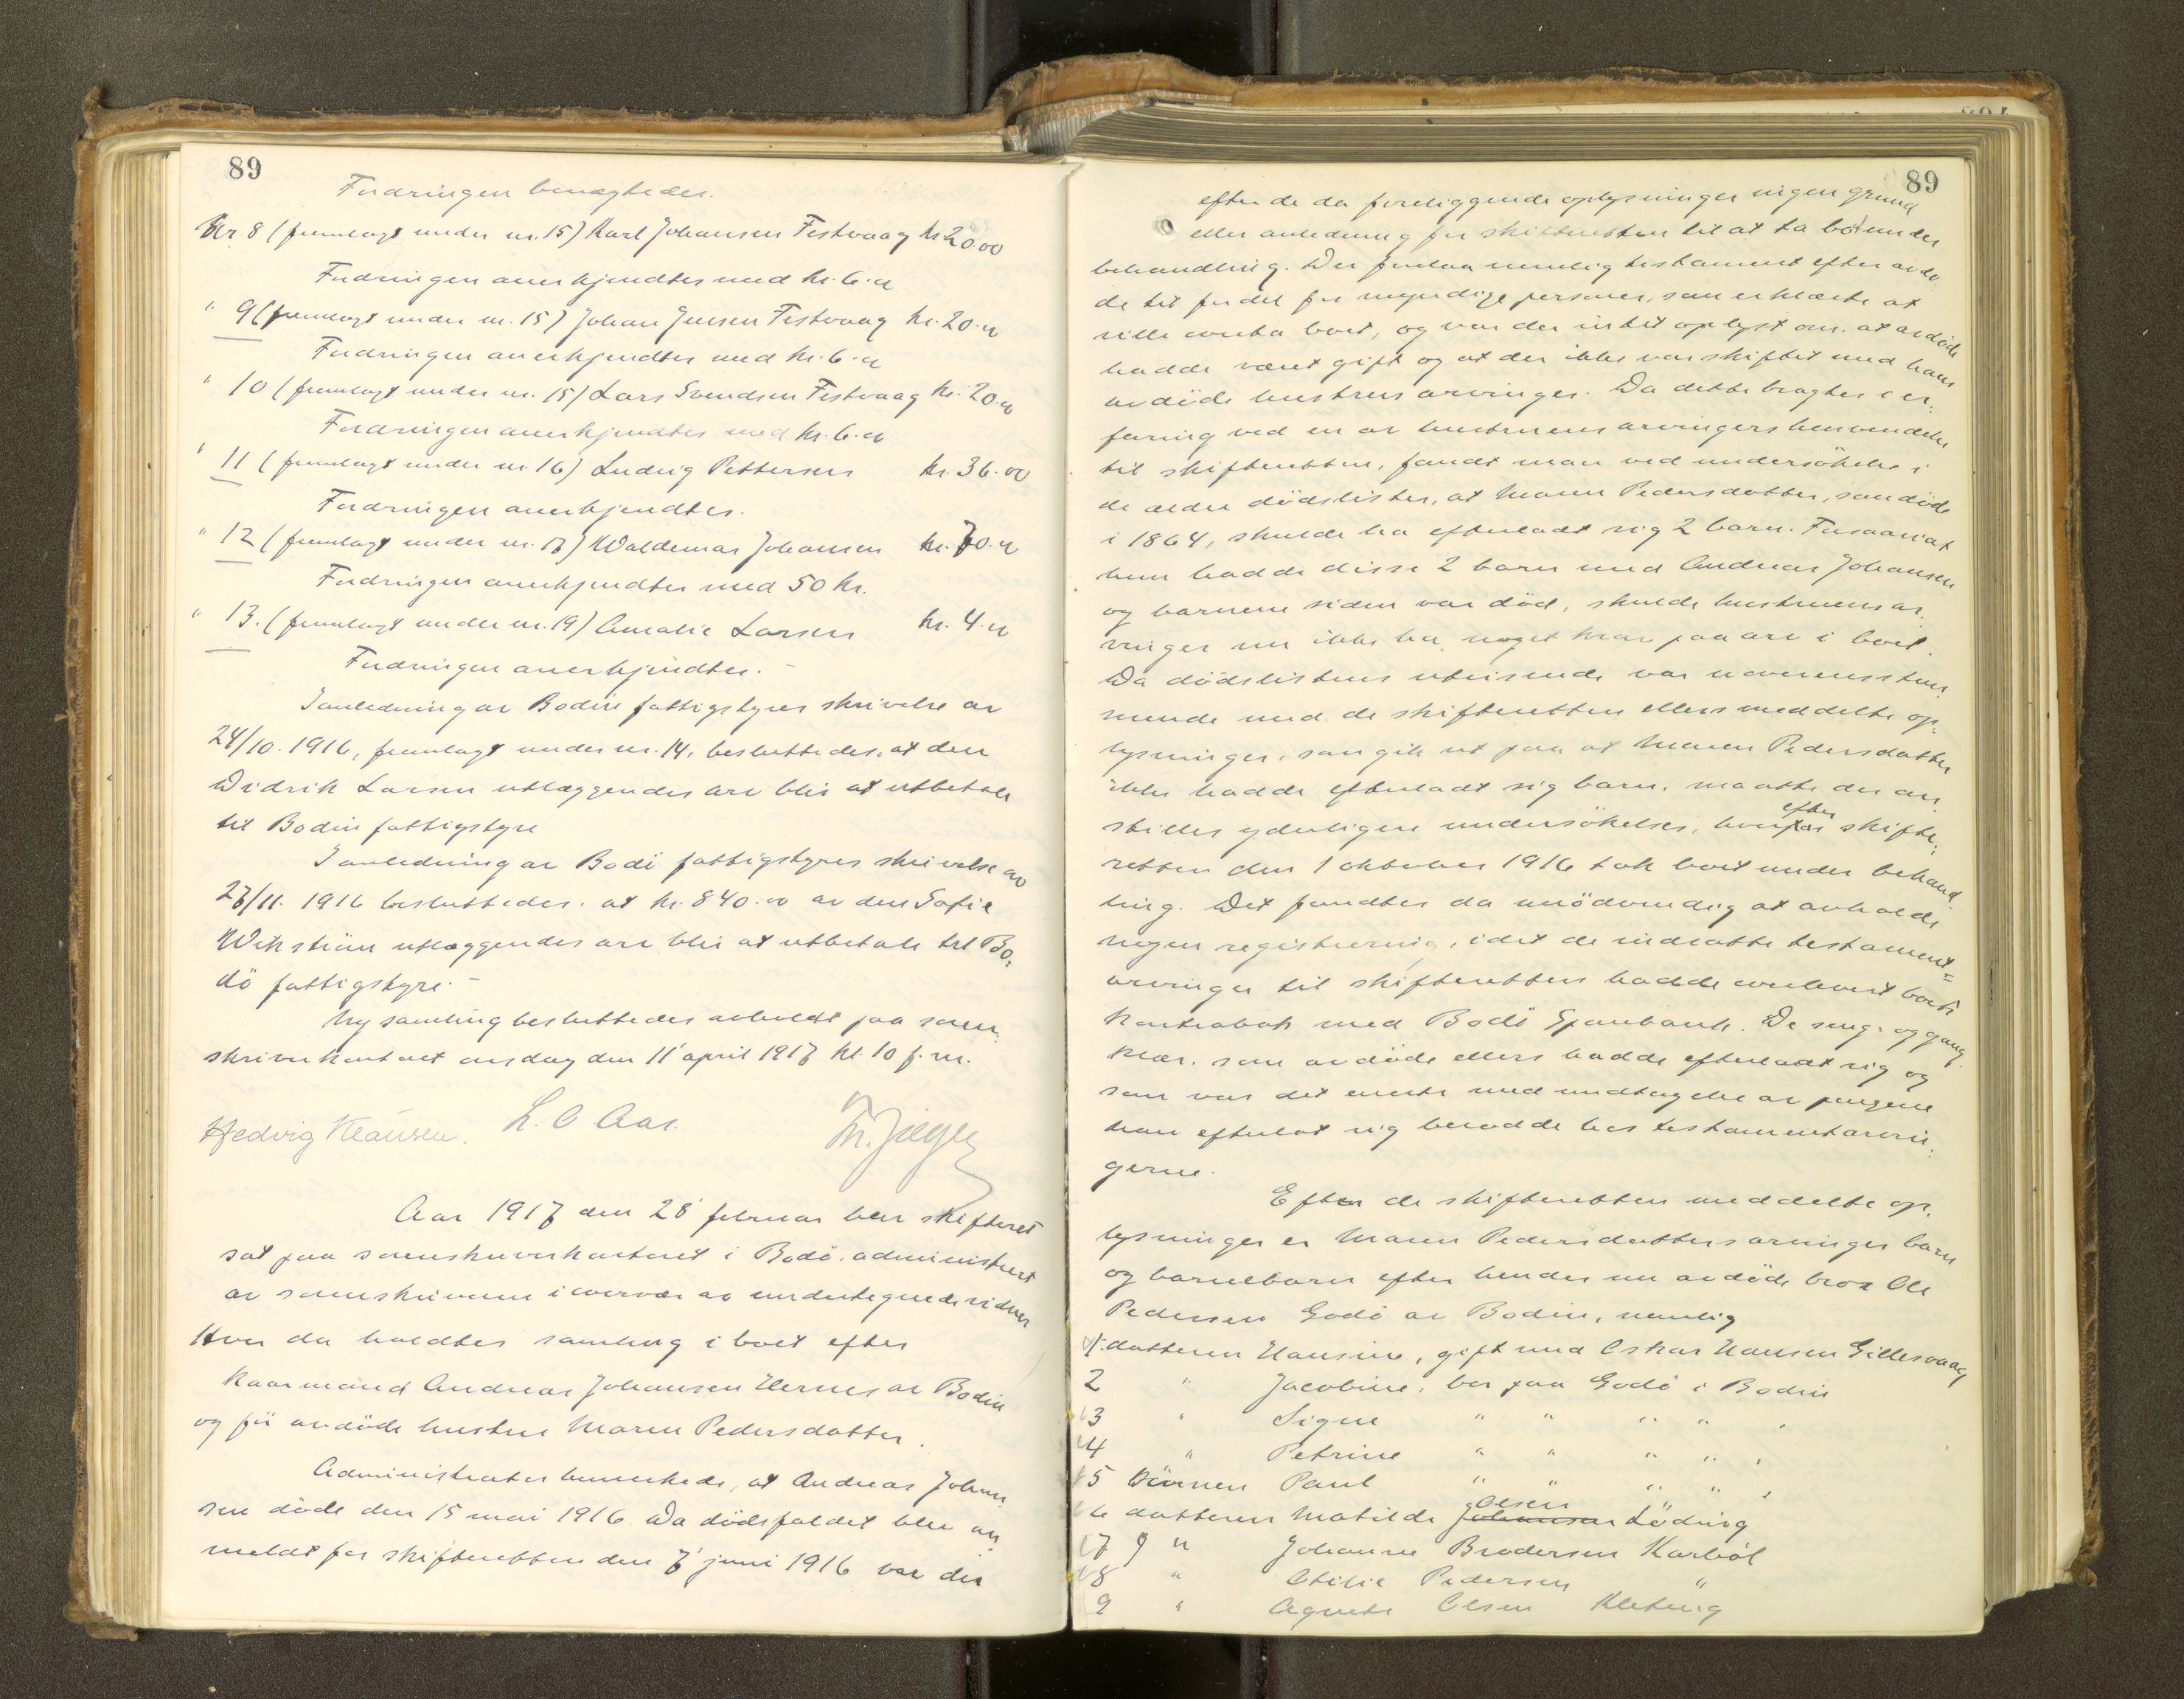 89
Fordringen benægtedes.
Nr. 8 (fremlagt under nr. 15) Karl Johansen Festvaag kr. 20.00
Fordringen anerkjendtes med kr. 6.00
" 9 (fremlagt under nr. 15) Johan Jensen Festvaag kr. 20.00
Fordringen anerkjendtes med kr. 6.00
" 10 (fremlagt under nr. 15) Lars Svendsen Festvaag kr. 20.00
Fordringen anerkjendtes med kr. 6.00
" 11 (fremlagt under nr. 16) Ludvig Pettersen kr. 36.00
Fordringen anerkjendtes.
" 12 (fremlagt under nr. 17) Waldemar Johansen kr. 70.00
Fordringen anerkjendtes med 50 kr.
" 13. (fremlagt under nr. 19) Amalie Larsen kr. 4.00
Fordringen anerkjendtes.-
I anledning av Bodin fattigstyres skrivelse av
24/10. 1916, fremlagt under nr. 14, besluttedes, at den
Didrik Larsen utlæggendes arv blir at utbetale
til Bodin fattigstyre
I anledning av Bodö fattigstyres skrivelse av
27/11. 1916 besluttedes, at kr. 840.00 av den Sofie
Wikström utlæggendes arv blir at utbetale til Bo-
dö fattigstyre.-
Ny samling besluttedes avholdt paa soren-
skriverkontoret onsdag den 11 april 1917 kl. 10 f.m.
Hedvig Klausen. L. O Aas.
Aar 1917 den 28 februar blev skifteret
sat paa sorenskriverkontoret i Bodö, administrert
av sorenskriveren i overvær av undertegnede vidner
Hvor da holdtes samling i boet efter
kaarmand Andreas Johansen Hernes av Bodin
og før avdöde hustru Maren Pedersdatter.
Administrator bemerkede, at Andreas Johan-
sen döde den 15 mai 1916. Da dödsfaldet blev an-
meldt for skifteretten den 7 juni 1916 var der
89
efter de da foreliggende oplysninger ingen grund
eller anledning for skifteretten til at ta boet under
behandling. Der forelaa nemlig testament efter avdö-
de til fordel for myndige personer, som erklærte at
ville overta boet, og var der intet oplyst om, at avdöde
hadde været gift og at der ikke var skiftet med hans
avdöde hustrus arvinger. Da dette bragtes i er-
faring ved en av hustruens arvingers henvendelse
til skifteretten, fandt man ved undersökelse i
de ældre dödslister, at Maren Pedersdatter, som döde
i 1864, skulde ha efterladt sig 2 barn. Forsaavidt
hun hadde disse 2 barn med Andreas Johansen
og barnene siden var död, skulde hustruens ar-
vinger nu ikke ha noget krav paa arv i boet.
Da dödslistens utvisende var uoverensstem-
mende med de skifteretten ellers meddelte op-
lysninger, som gik ut paa at Maren Pedersdatter
ikke hadde efterladt sig barn, maatte der an-
stilles yderligere undersökelser, hvorefter skifte-
retten den 1 oktober 1916 tok boet under behand-
ling. Det fandtes da unödvendig at avholde
nogen registrering, idet de indsatte testament-
arvinger til skifteretten hadde overlevert boets
kontrabok med Bodö Sparebank. De seng- og gang-
klær, som avdöde ellers hadde efterladt sig og
som var det eneste med undtagelse av pengene
han efterlot sig berodde hos testamentarvin-
gerne.
Efter de skifteretten meddelte op-
lysninger er Maren Pedersdatters arvinger barn
og barnebarn efter hendes nu avdöde bror Ole
Pedersen Godö av Bodin, nemlig
1. datteren Hansine, gift med Oskar Hansen Gillesvaag
2 " Jacobine, bor paa Godö i Bodin
3 " Signe " " " " "
4 " Petrine " " " " "
5 Sönnen Paul " " " " "
6 datteren Matilde Johansen Olsen Löding
7 " Johanne Brodersen Karböl
8 " Otilie Pedersen "
9 " Agnete Olsen